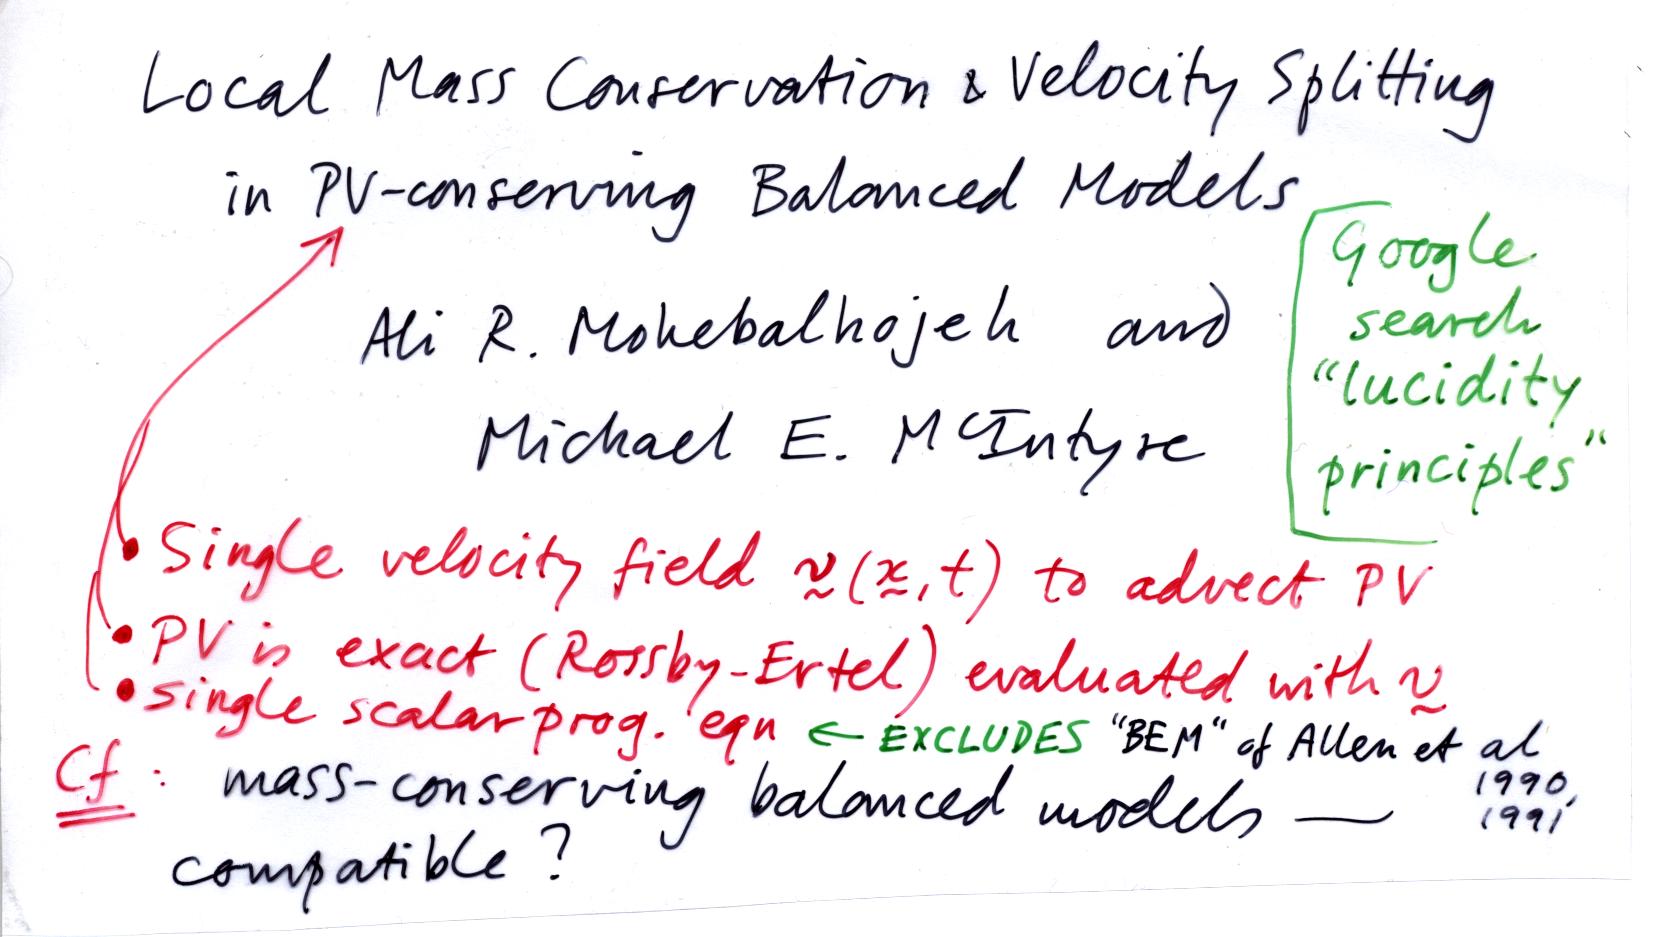 Local Mass Conservation & Velocity Splitting
in PV-conserving Balanced Models
Ali R. Mohebalhojeh and
Michael E. McIntyre
Google
search
"lucidity
principles"
• Single velocity field v(x, t) to advect PV
• PV is exact (Rossby-Ertel) evaluated with v
• single scalar prog. eqn ← EXCLUDES "BEM" of Allen et al
1990,
1991
Cf: mass-conserving balanced models —
compatible?